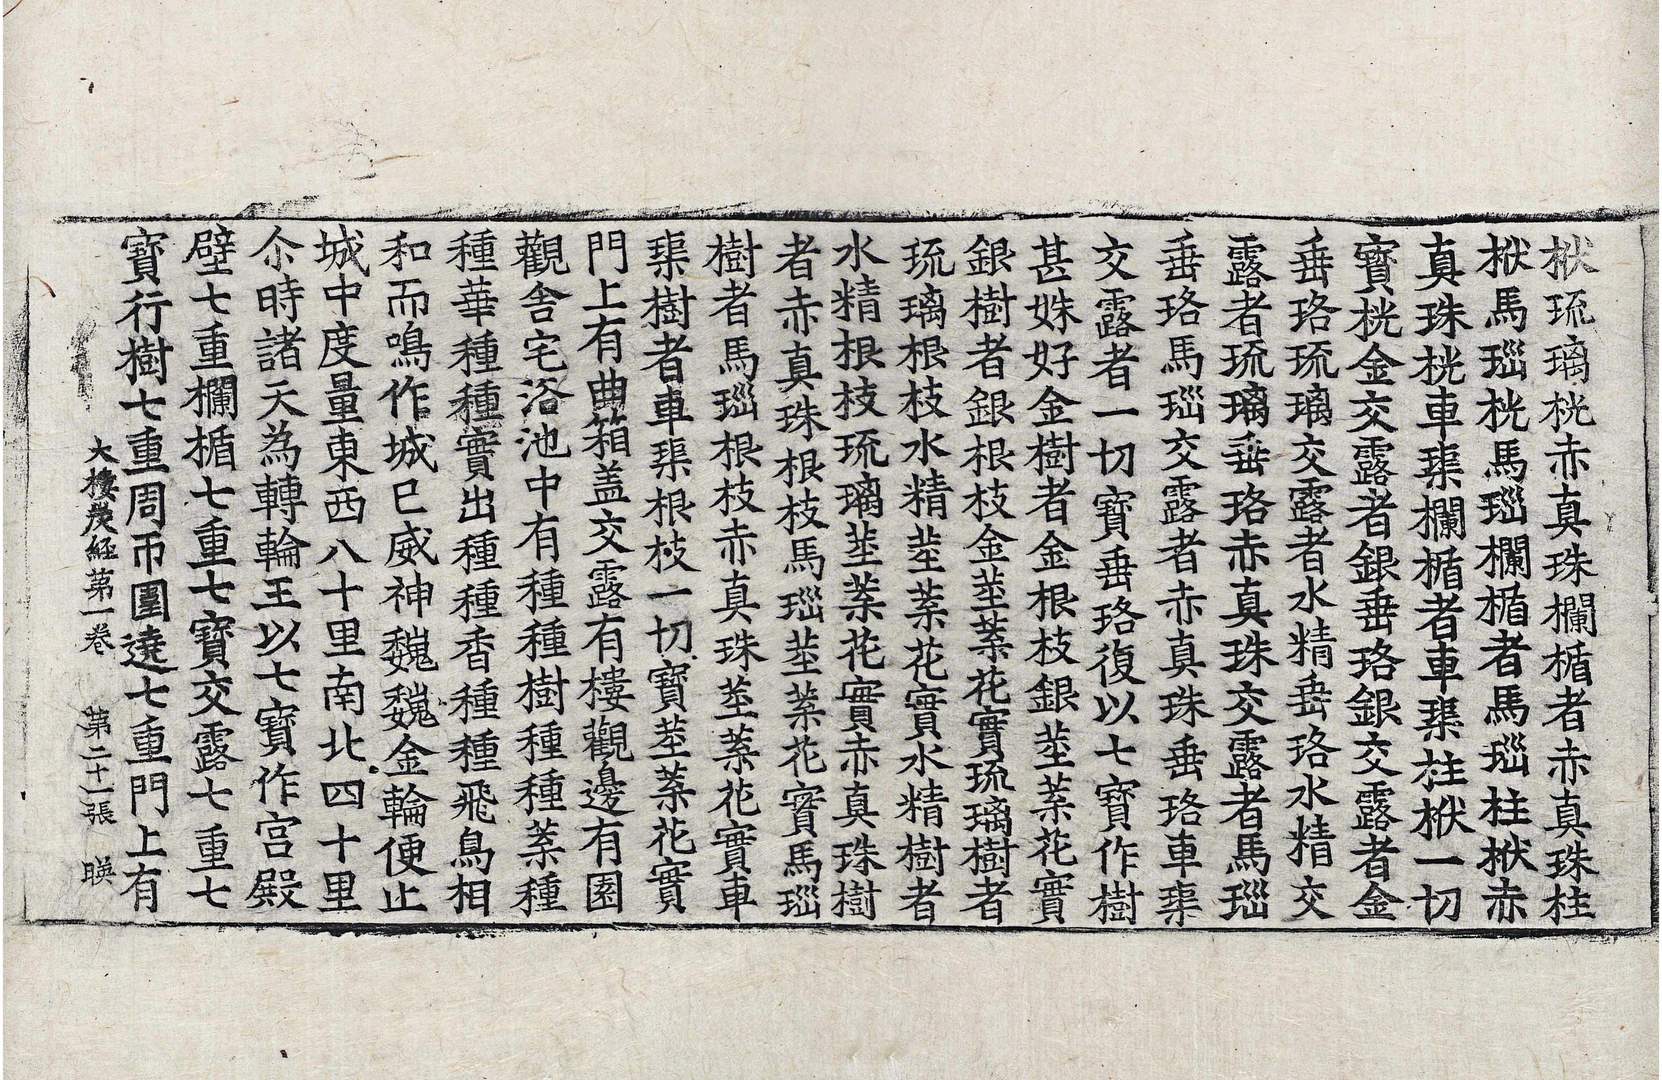 栿琉璃桄赤真珠欄楯者赤真珠柱
栿馬瑙桄馬瑙欄楯者馬瑙柱栿赤
真珠桄車𤦲欄楯者車𤦲柱栿一切
寶桄金交露者銀垂珞銀交露者金
垂珞琉璃交露者水精垂珞水精交
露者琉璃垂珞赤真珠交露者馬瑙
垂珞馬瑙交露者赤真珠垂珞車𤦲
交露者一切寶垂珞復以七寶作樹
甚姝好金樹者金根枝銀莖葉花實
銀樹者銀根枝金莖葉花實琉璃樹者
琉璃根枝水精莖葉花實水精樹者
水精根枝琉璃莖葉花實赤真珠樹
者赤真珠根枝馬瑙莖葉花實馬瑙
樹者馬瑙根枝赤真珠莖葉花實車
𤦲樹者車𤦲根枝一切寶莖葉花實
門上有曲箱盖交露有樓觀邊有園
觀舍宅浴池中有種種樹種種葉種
種華種種實出種種香種種飛鳥相
和而鳴作城已威神巍巍金輪便止
城中度量東西八十里南北四十里
尒時諸天為轉輪王以七寶作宮殿
壁七重欄楯七重七寶交露七重七
寶行樹七重周帀圍遶七重門上有
大樓炭經第一卷　第二十一張　暎